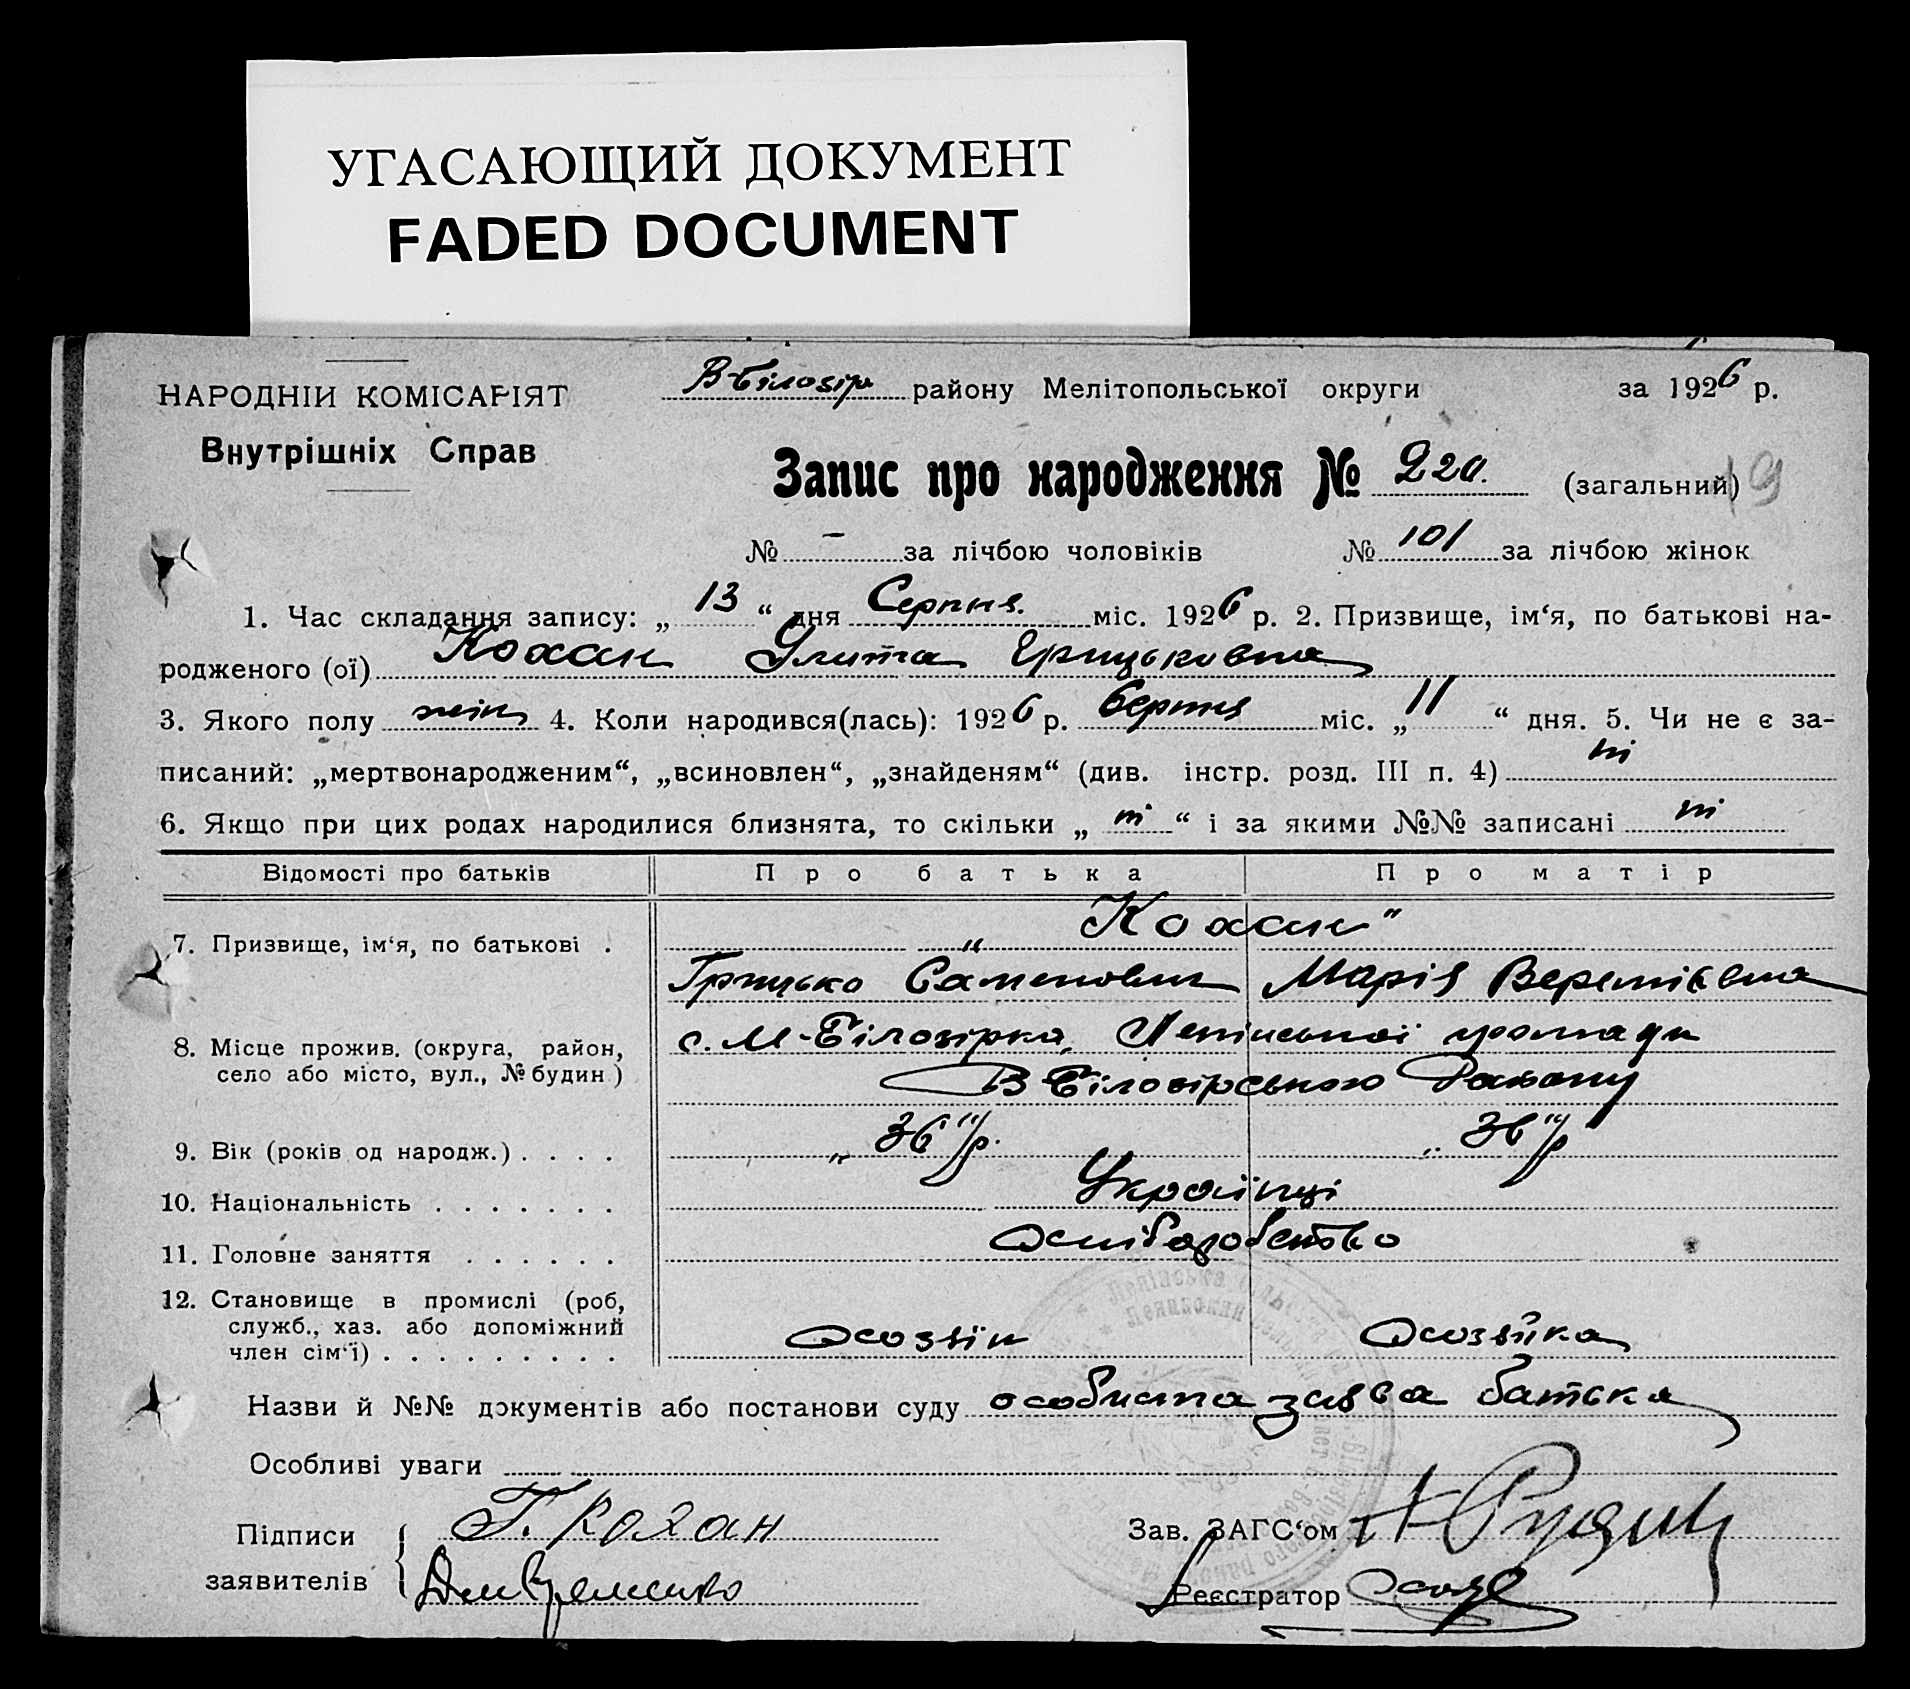 УГАСАЮЩИЙ ДОКУМЕНТ
FADED DOCUMENT
НАРОДНІЙ КОМІСАРІЯТ
Внутрішніх Справ
В-Білозір району Мелітопольської округи за 1926 р.
Запис про народження № 220. (загальний) 9
№ - за лічбою чоловіків № 101 за лічбою жінок
1. Час складання запису: „ 13 “ дня Серпня. міс. 1926 р. 2. Призвище, ім‘я, по батькові на-
родженого (ої) Кохан Улита Грицьковна
3. Якого полу жін 4. Коли народився(лась): 1926 р. Серпня міс. „ 11 “ дня. 5. Чи не є за-
писаний: „мертвонародженим“, „всиновлен“, „знайденям“ (див. інстр. розд. III п. 4) ні
6. Якщо при цих родах народилися близнята, то скільки „ ні “ і за якими №№ записані ні
Відомості про батьків Про батька Про матір
7. Призвище, ім‘я, по батькові . „Кохан“
Грицько Саменович Марія Веремієвна
8. Місце прожив. (округа, район,
село або місто, вул., № будин) с. М-Білозірка, Ленінської громади
В Білозірського Району
9. Вік (років од народж.) . . . . „36“ р. „36“ р
10. Національність . . . . . . . Українці
11. Головне заняття . . . . . . Хліборобство
12. Становище в промислі (роб,
служб., хаз. або допоміжний
член сім‘ї) . . . . . . . . . Хозяїн Хозяйка
Назви й №№ документів або постанови суду особиста заява батька
Особливі уваги
Підписи
заявителів Г. Кохан
Зав. ЗАГС‘ом
Реєстратор